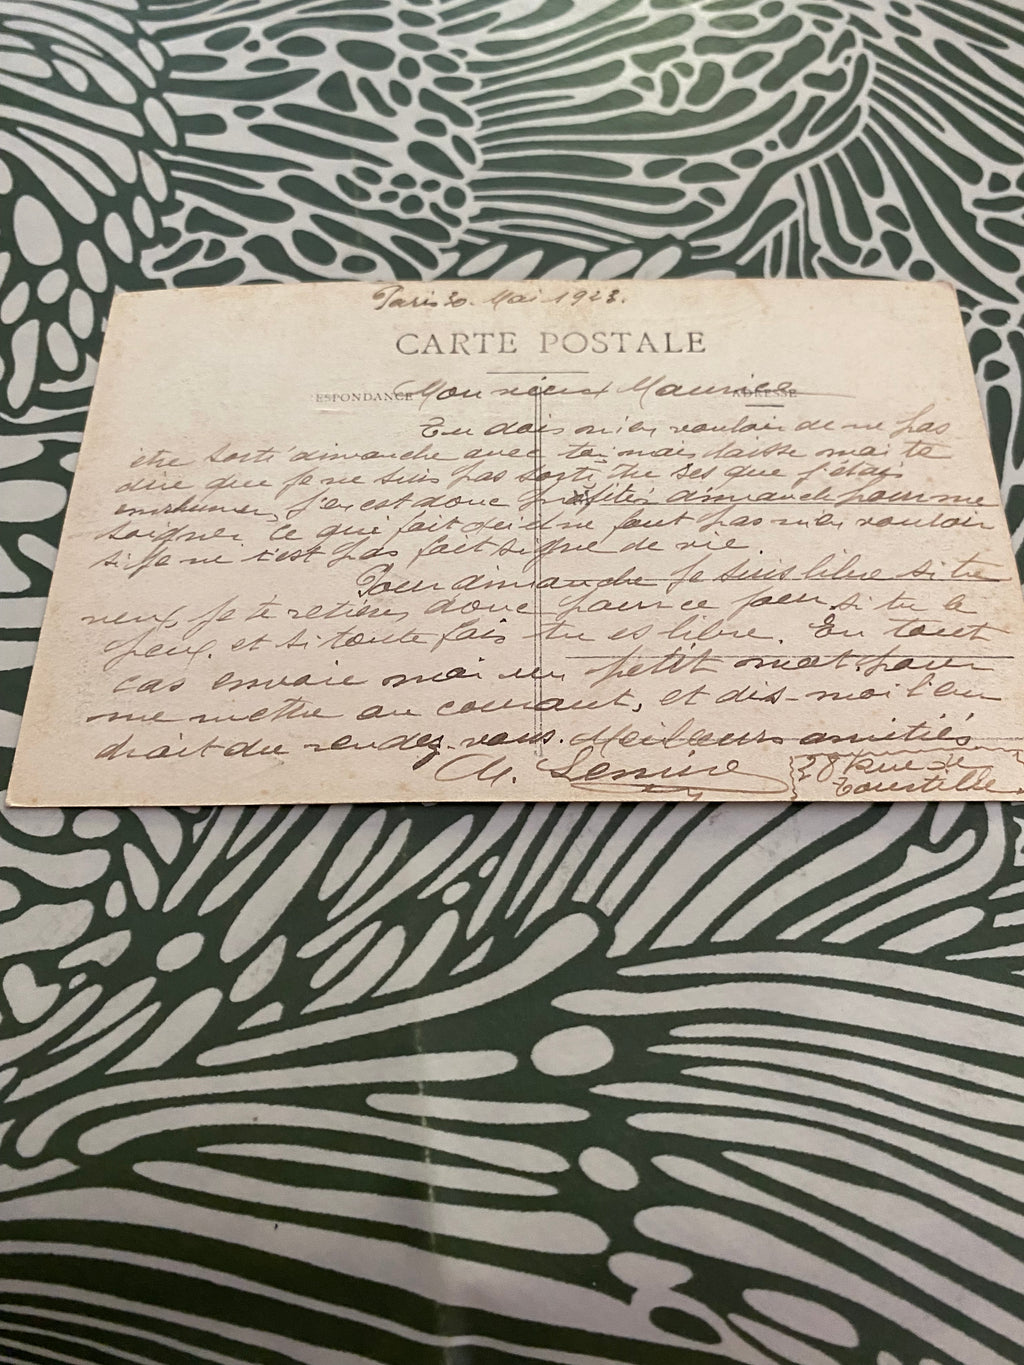 Paris 30. Mai 1923.
CARTE POSTALE
ESPONDANCE
ADRESSE
Monsieur Maurice
Tu dois m'en vouloir de ne pas
etre sorti dimanche avec toi mais laisse moi te
dire que je ne suis pas sorti tu ses que j'étais
enrhumer, j'ai est donc profiter dimanche pour me
soigner ce qui fait qu'il ne faut pas m'en vouloir
si je ne t'est pas fait signe de vie.
Pour dimanche je suis libre si tu
veux, je te retiens donc pour ce jour si tu le
peux, et si toute fois tu es libre. En tout
cas envoie moi un petit mot pour
me mettre au courant, et dis-moi l'en
droit du rendez-vous. Meilleurs amitiés
28 Rue de